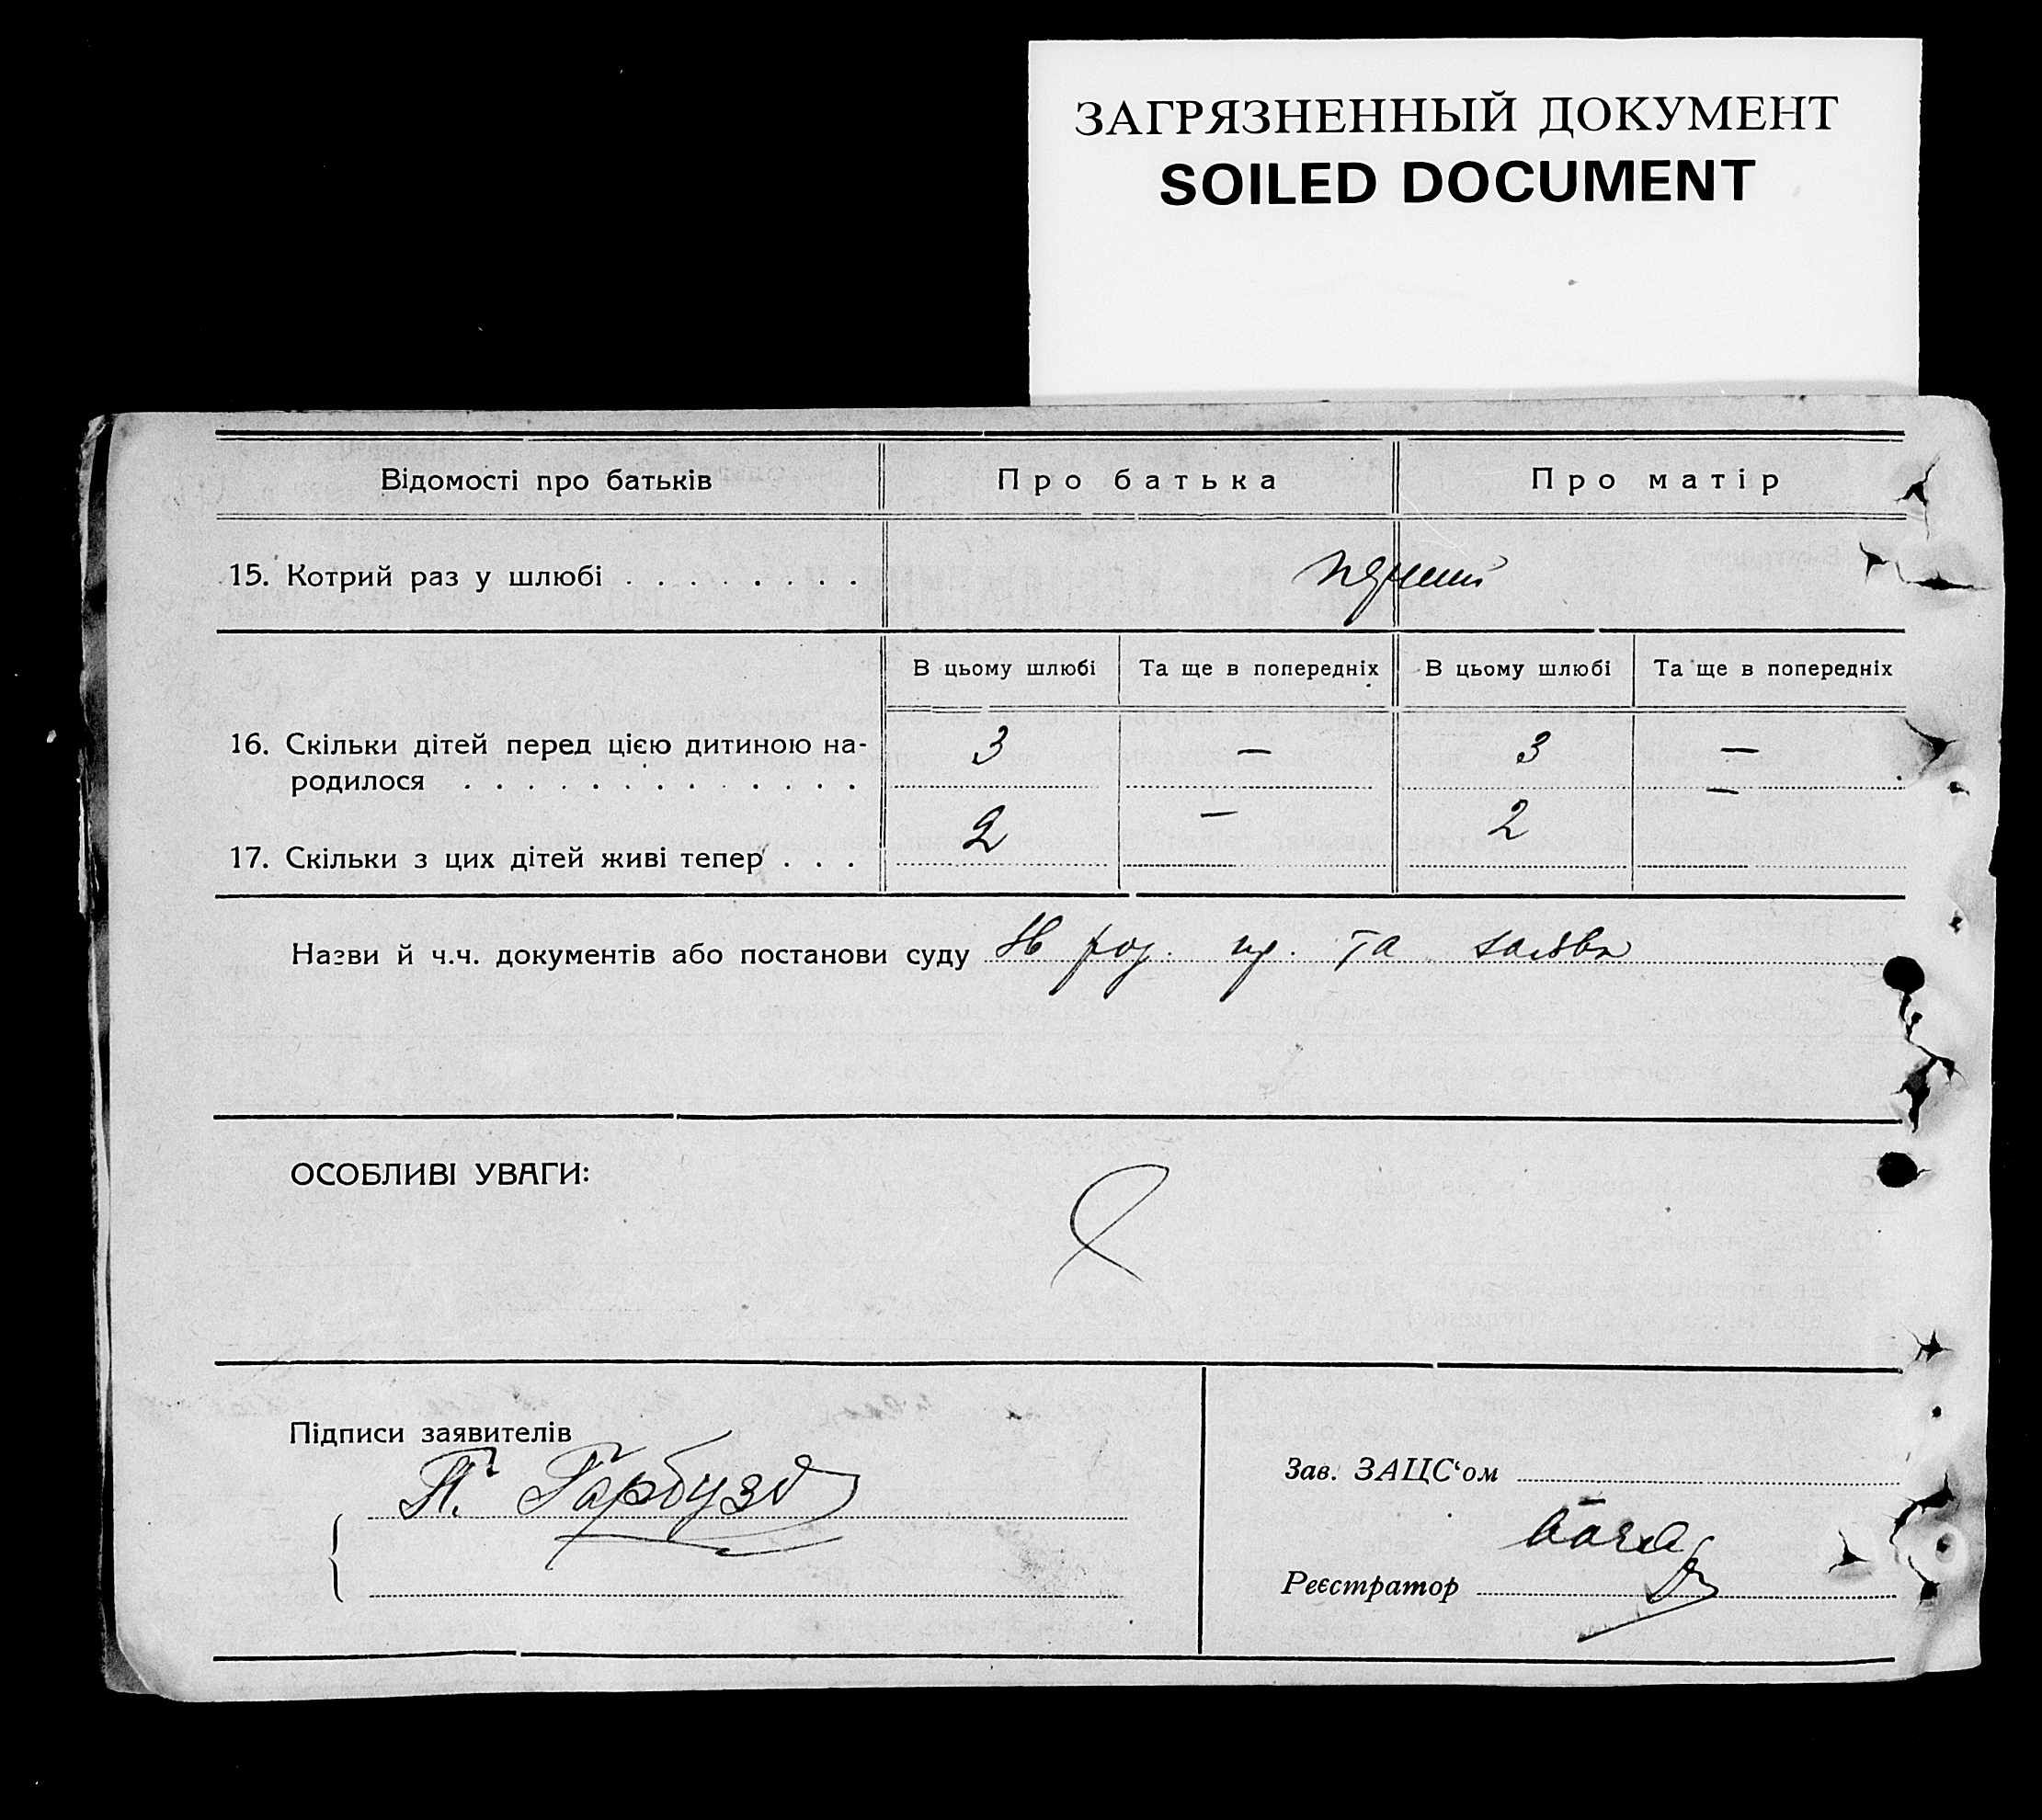 ЗАГРЯЗНЕННЫЙ ДОКУМЕНТ
SOILED DOCUMENT
Відомості про батьків Про батька Про матір
15. Котрий раз у шлюбі . . . . . . . . перший
В цьому шлюбі Та ще в попередніх В цьому шлюбі Та ще в попередніх
16. Скільки дітей перед цією дитиною на- 3 — 3 —
родилося . . . . . . . . . . . . . .
17. Скільки з цих дітей живі тепер . . . 2 — 2 —
Назви й ч.ч. документів або постанови суду та заява
ОСОБЛИВІ УВАГИ:
Підписи заявителів
П. Гарбузо
Зав. ЗАЦС‘ом
Реєстратор